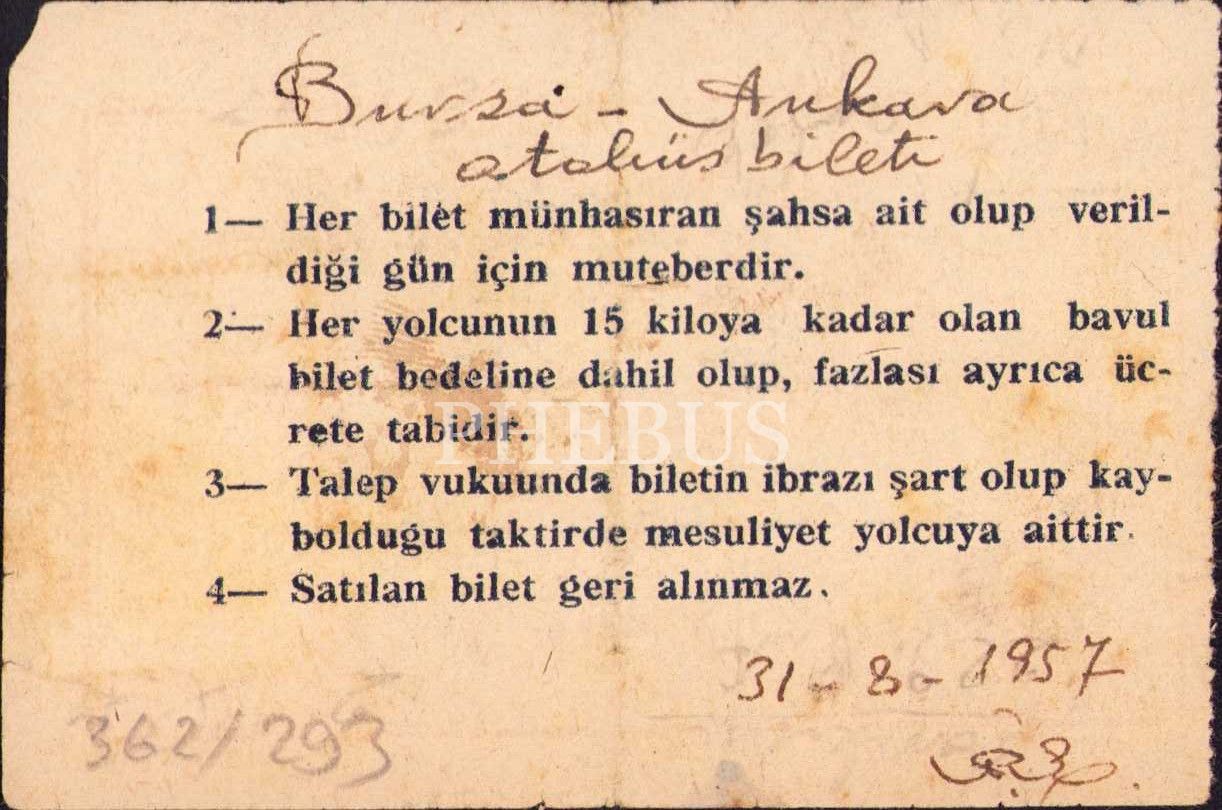 Bursa - Ankara
otobüs bileti
1— Her bilet münhasıran şahsa ait olup veril-
diği gün için muteberdir.
2— Her yolcunun 15 kiloya kadar olan bavul
bilet bedeline dahil olup, fazlası ayrıca üc-
rete tabidir.
PHEBUS
3— Talep vukuunda biletin ibrazı şart olup kay-
bolduğu taktirde mesuliyet yolcuya aittir.
4— Satılan bilet geri alınmaz.
31-8-1957
362/293